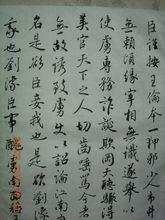 臣謹按王倫本一狎邪小人市井
無賴頃緣宰相無識遂舉以
使虜專務詐誕欺罔天聽驟得
美官天下之人切齒唾罵今者
無故誘致虜使以詔諭江南為
名是欲臣妾我也是欲劉豫
我也劉豫臣事醜虜南面稱